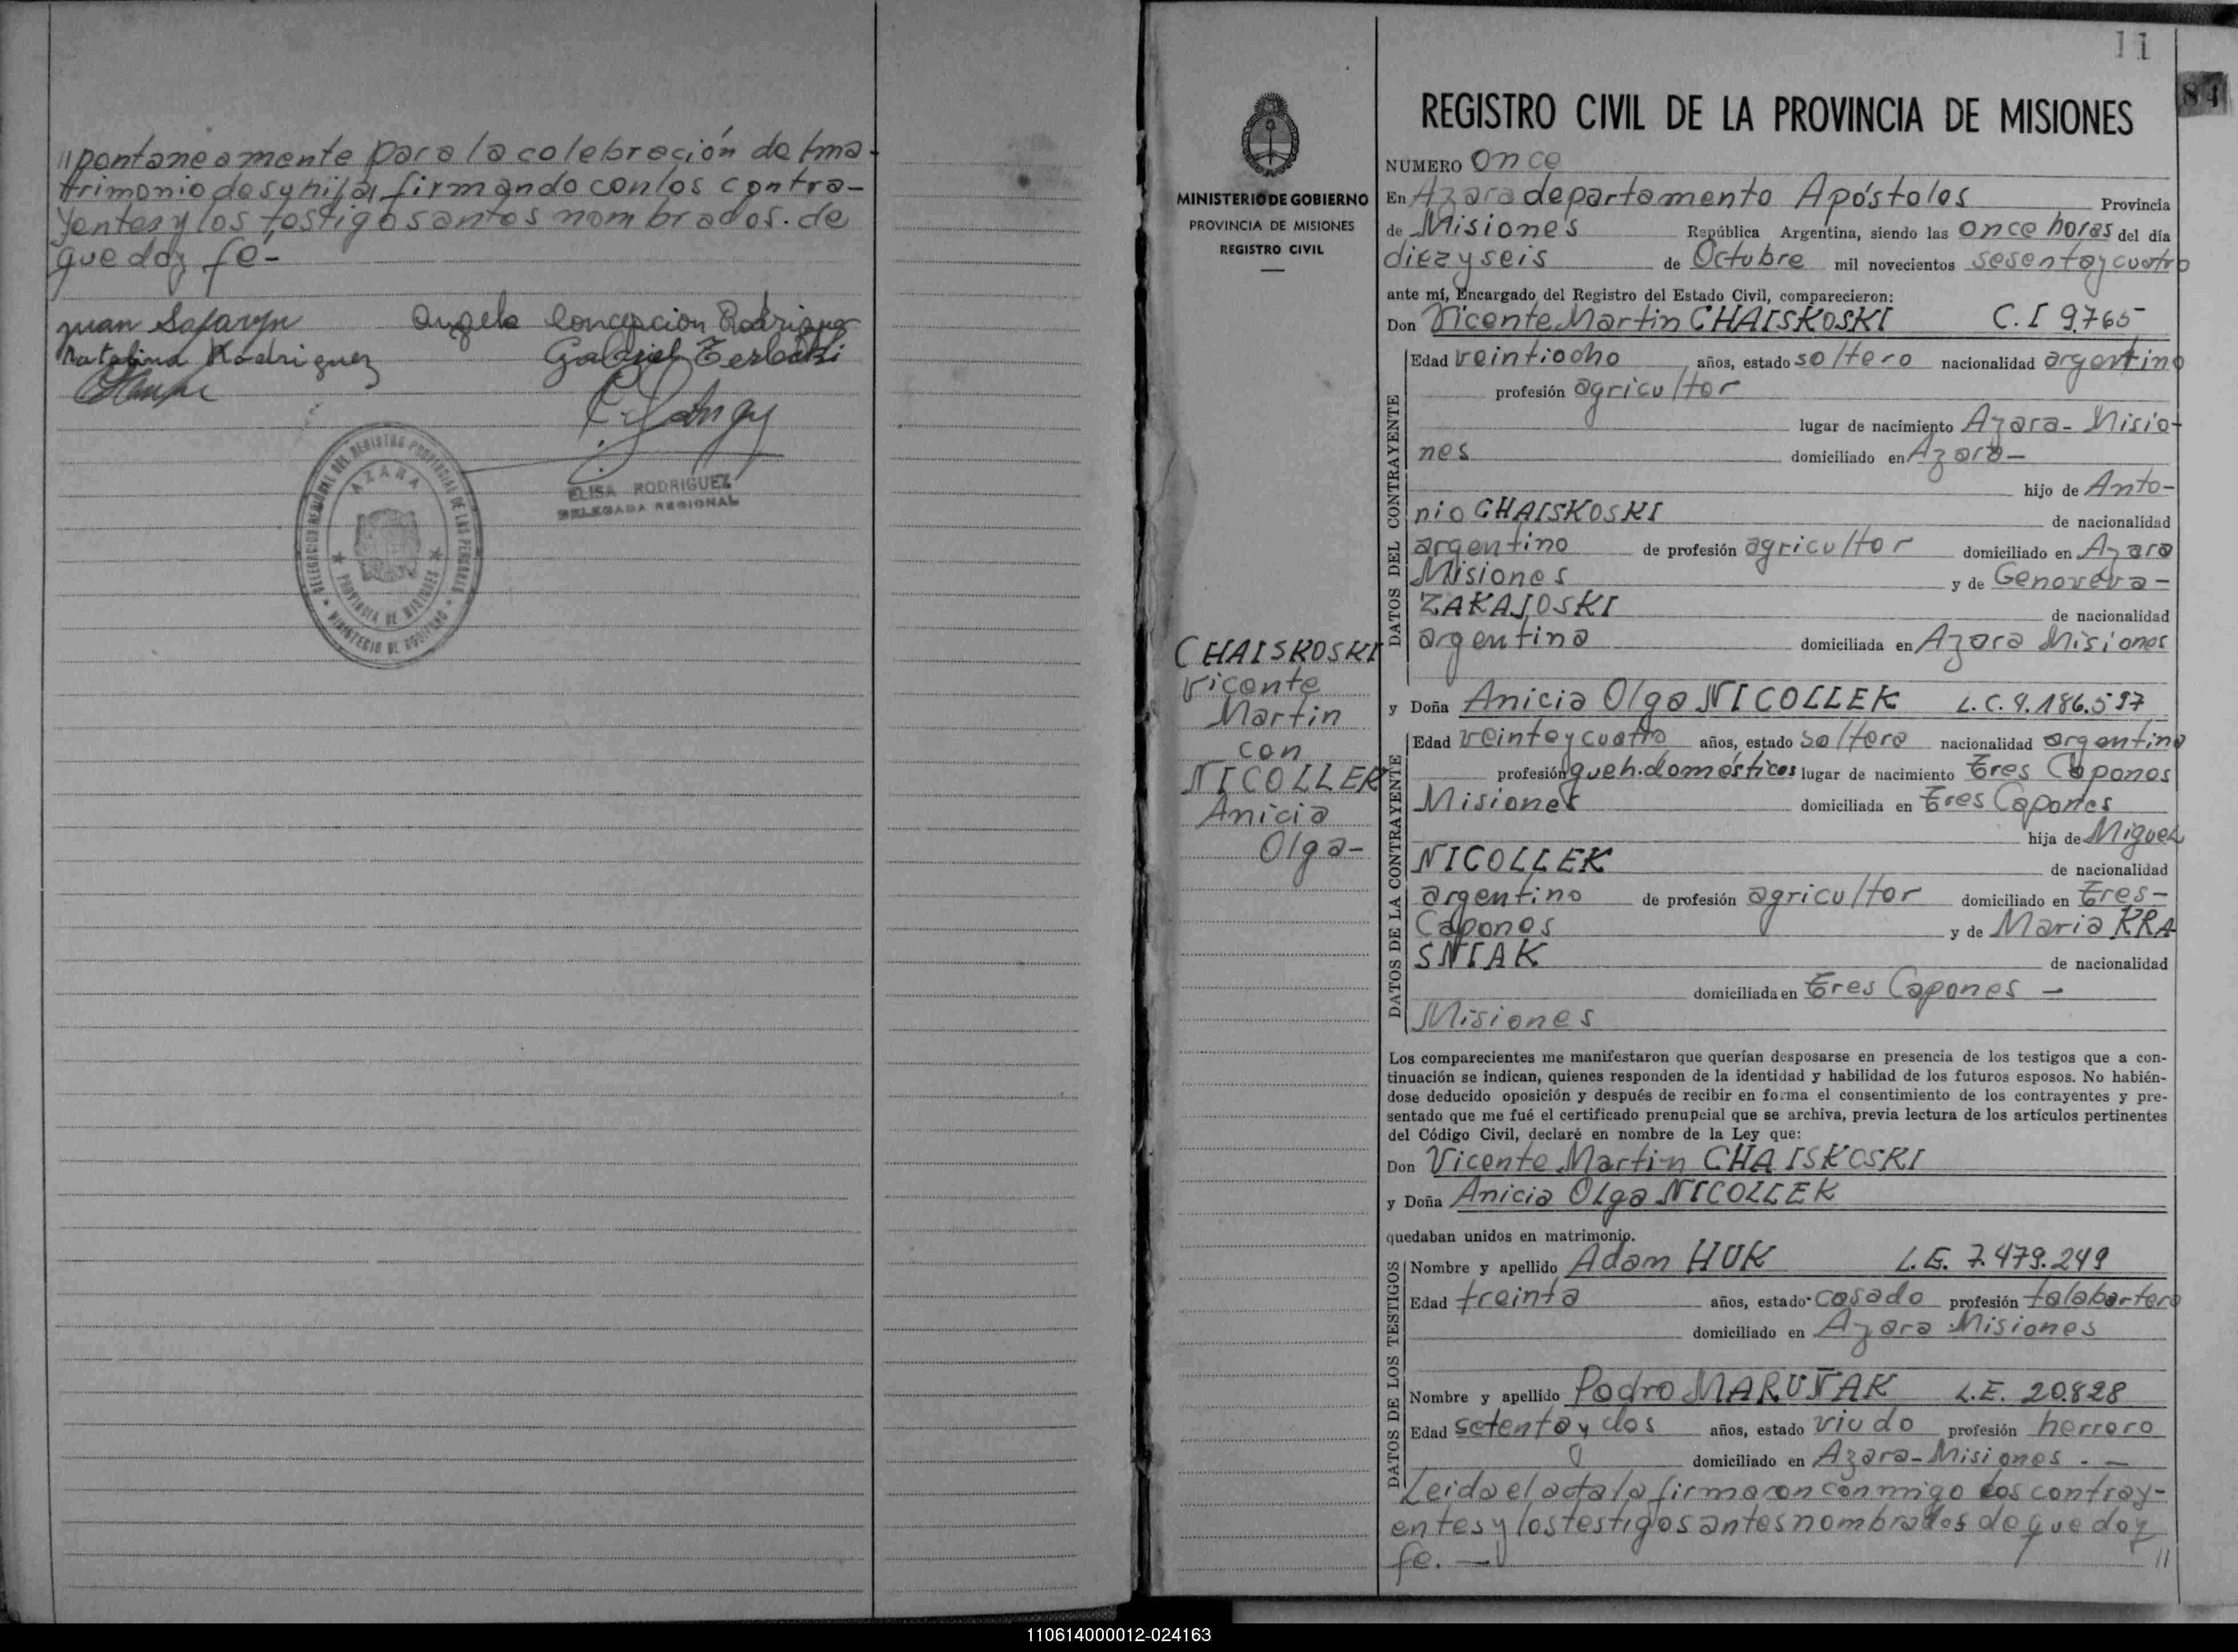 //pontaneamente para la celebración de l ma-
trimonio de su hija, firmando con los contra-
yentes y los testigos antes nombrados. de
que doy fé-
Juan Safaryn
Angela Concepcion Rodriguez
Natalina Rodriguez
Gabriel Zerbatki
DELEGACION REGIONAL DEL REGISTRO PROVINCIAL DE LAS PERSONAS
AZARA
PROVINCIA DE MISIONES
MINISTERIO DE GOBIERNO
ELISA RODRIGUEZ
DELEGADA REGIONAL
11
84
MINISTERIO DE GOBIERNO
PROVINCIA DE MISIONES
REGISTRO CIVIL
CHAISKOSKI
Vicente
Martin
con
NICOLLEK
Anicia
Olga-
REGISTRO CIVIL DE LA PROVINCIA DE MISIONES
NUMERO Once
En Azara departamento Apóstoles Provincia
de Misiones República Argentina, siendo las Once horas del día
diez y seis de Octubre mil novecientos sesenta y cuatro
ante mí, Encargado del Registro del Estado Civil, comparecieron:
Don Vicente Martin CHAISKOSKI C.I 9.765
DATOS DEL CONTRAYENTE
Edad veintiocho años, estado soltero nacionalidad argentino
profesión agricultor
lugar de nacimiento Azara- Misio-
nes domiciliado en Azara-
hijo de Anto-
nio CHAISKOSKI de nacionalidad
argentino de profesión agricultor domiciliado en Azara
Misiones y de Genoveva-
ZAKAJOSKI de nacionalidad
argentina domiciliada en Azara Misiones
y Doña Anicia Olga NICOLLEK L.C. 4.186.597
DATOS DE LA CONTRAYENTE
Edad veinte y cuatro años, estado soltera nacionalidad argentina
profesión queh. domésticos lugar de nacimiento Tres Capones
Misiones domiciliada en Tres Capones
hija de Miguel
NICOLLEK de nacionalidad
argentino de profesión agricultor domiciliado en Tres-
Capones y de Maria KRA
SNIAK de nacionalidad
domiciliada en Tres Capones -
Misiones
Los comparecientes me manifestaron que querían desposarse en presencia de los testigos que a con-
tinuación se indican, quienes responden de la identidad y habilidad de los futuros esposos. No habién-
dose deducido oposición y después de recibir en forma el consentimiento de los contrayentes y pre-
sentado que me fué el certificado prenupcial que se archiva, previa lectura de los artículos pertinentes
del Código Civil, declaré en nombre de la Ley que:
Don Vicente Martin CHAISKOSKI
y Doña Anicia Olga NICOLLEK
quedaban unidos en matrimonio.
DATOS DE LOS TESTIGOS
Nombre y apellido Adam HUK L.E. 7.479.249
Edad treinta años, estado casado profesión talabartero
domiciliado en Azara Misiones
Nombre y apellido Pedro MARUÑAK L.E. 20.828
Edad setenta y dos años, estado viudo profesión herrero
domiciliado en Azara-Misiones . -
Leida el acta la firmaron conmigo los contray-
entes y los testigos antes nombrados de que doy
fe. - //
110614000012-024163